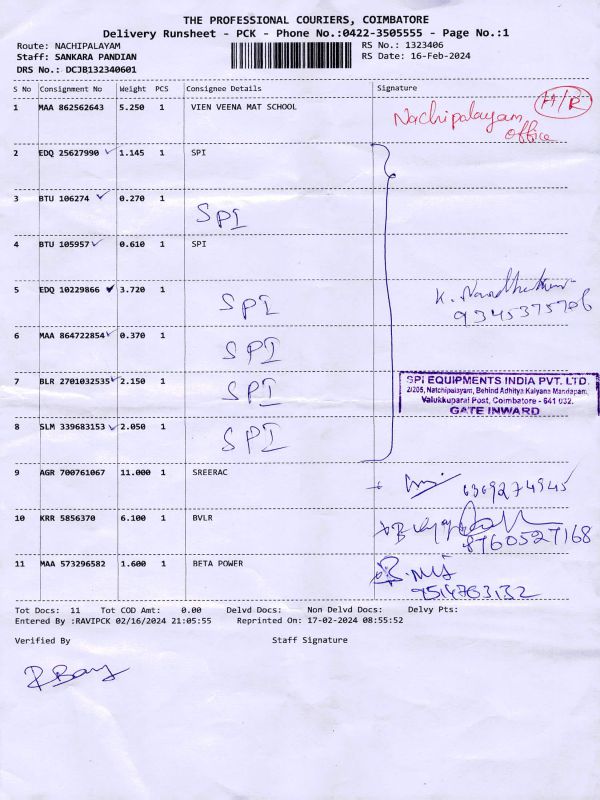 THE PROFESSIONAL COURIERS, COIMBATORE
Delivery Runsheet - PCK - Phone No.:0422-3505555 - Page No.:1
Route: NACHIPALAYAM RS No.: 1323406
Staff: SANKARA PANDIAN RS Date: 16-Feb-2024
DRS No.: DCJB132340601
S No Consignment No Weight PCS Consignee Details Signature
1 MAA 862562643 5.250 1 VIEN VEENA MAT SCHOOL
H/R
Nachipalayam
office
2 EDQ 25627990 1.145 1 SPI
3 BTU 106274 0.270 1 SPI
4 BTU 105957 0.610 1 SPI
5 EDQ 10229866 3.720 1 SPI
9345375706
6 MAA 864722854 0.370 1 SPI
7 BLR 2701032535 2.150 1 SPI
SPI EQUIPMENTS INDIA PVT. LTD.
2/205, Natchipalayam, Behind Adhitya Kalyana Mandapam,
Valukkuparai Post, Coimbatore - 641 032.
GATE INWARD
8 SLM 339683153 2.050 1 SPI
9 AGR 700761067 11.000 1 SREERAC 6369274945
10 KRR 5856370 6.100 1 BVLR
8760527168
11 MAA 573296582 1.600 1 BETA POWER
9514763132
Tot Docs: 11 Tot COD Amt: 0.00 Delvd Docs: Non Delvd Docs: Delvy Pts:
Entered By :RAVIPCK 02/16/2024 21:05:55 Reprinted On: 17-02-2024 08:55:52
Verified By Staff Signature